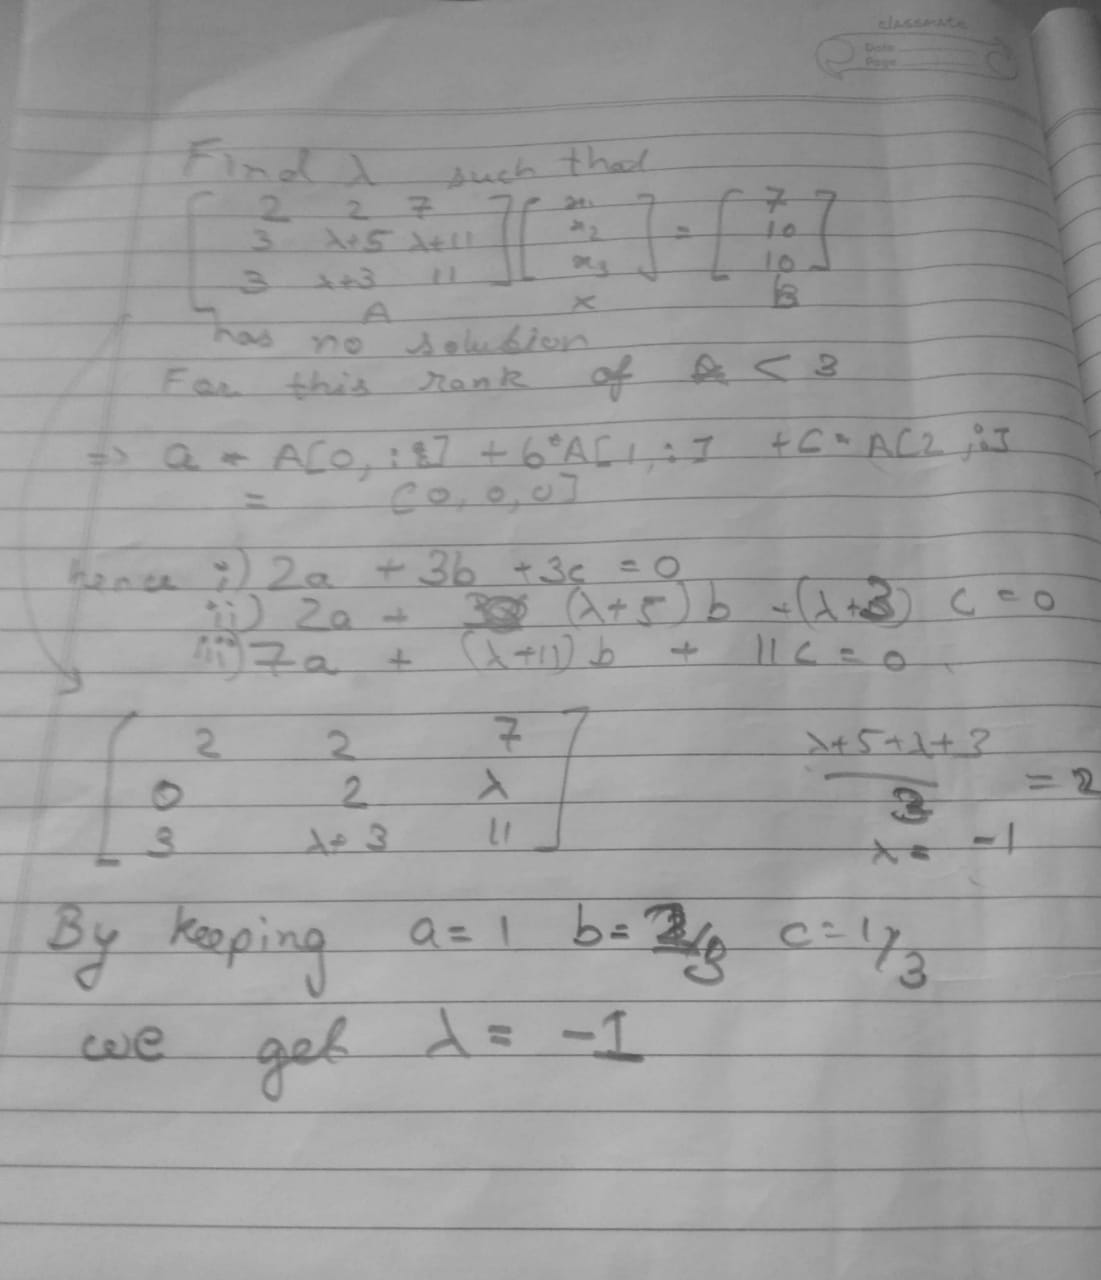 classmate
Date
Page
Find λ such that
[ 2 2 7 ] [ x₁ ] = [ 7 ]
[ 3 λ+5 λ+11 ] [ x₂ ] [ 10 ]
[ 3 λ+3 11 ] [ x₃ ] [ 10 ]
A x B
has no solution
For this rank of A < 3
⇒ a * A[0, :] + b*A[1, :] + C * A[2, :]
= [0, 0, 0]
hence i) 2a + 3b + 3c = 0
ii) 2a + (λ+5) b + (λ+3) c = 0
iii) 7a + (λ+11) b + 11c = 0
[ 2 2 7 ]
[ 0 2 λ ]
[ 3 λ+3 11 ]
λ+5+λ+3
= 2
3
λ = -1
By keeping a = 1 b = /3 c = 1/3
we get λ = -1